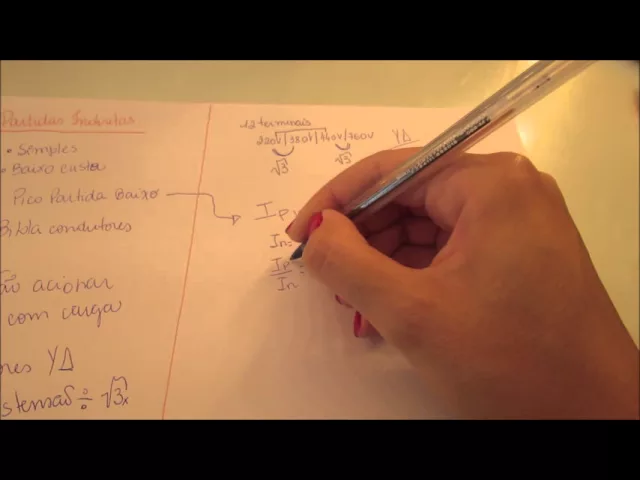 Partidas Indiretas
• Simples
• Baixo custo
Pico Partida Baixo
Bitola condutores
ão acionar
com carga
ores YΔ
stensão ÷ √3x
12 terminais
220V/380V/440V/760V
√3 √3
YΔ
Ip
In=
Ip
In